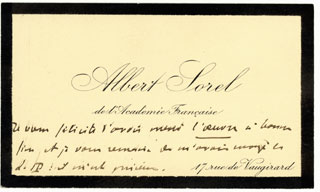 Albert Sorel
de l'Académie Française
Je vous félicite d'avoir mené l'œuvre à bonne
fin et je vous remercie de m'avoir
17 rue de Vaugirard